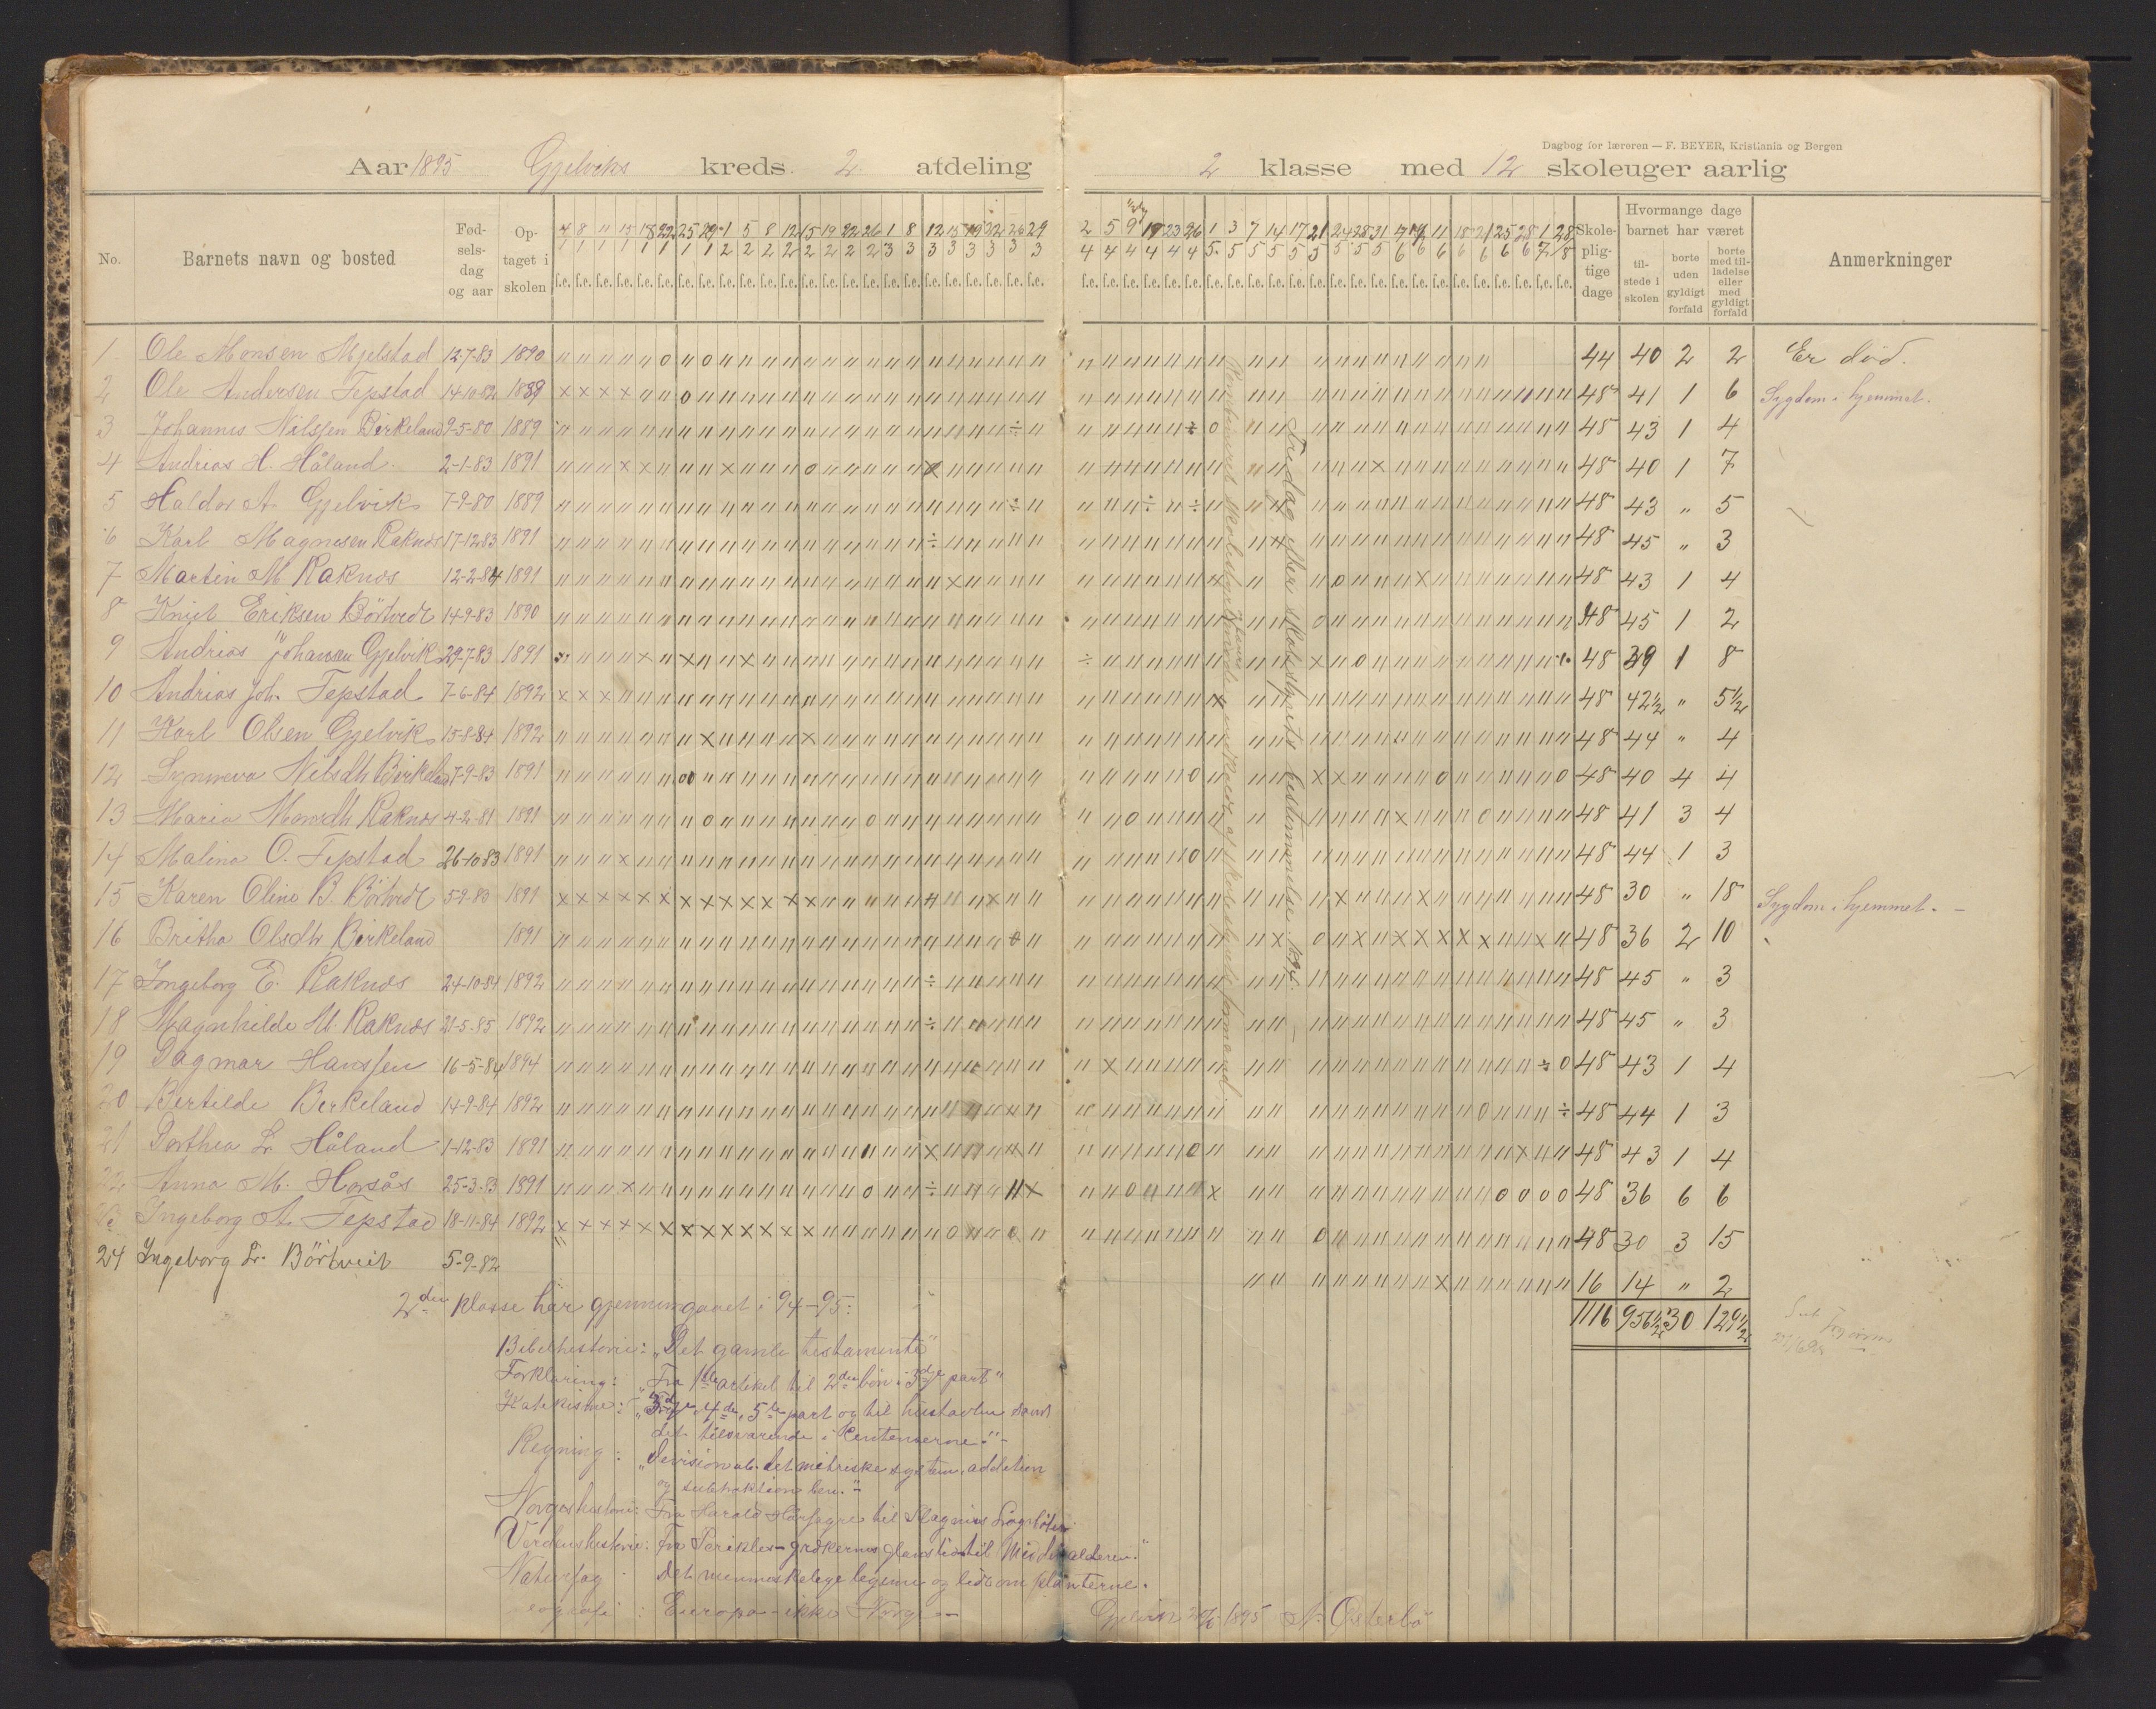 Dagbog for læreren — F. BEYER, Kristiania og Bergen
Aar 1895 Gjelviks kreds. 2 afdeling 2 klasse med 12 skoleuger aarlig
No. Barnets navn og bosted Fødselsdag og aar Optaget i skolen Skolepligtige dage Hvormange dage barnet har været tilstede i skolen borte uden gyldigt forfald borte med tilladelse eller med gyldigt forfald Anmerkninger
4 8 11 15 18 22 25 29 1 5 8 12 15 19 22 26 1 8 12 15 19 22 26 29 2 5 9 19 23 26 1 3 7 14 17 21 24 28 31 4 11 18 21 25 28 1 28
1 1 1 1 1 1 1 1 2 2 2 2 2 2 2 2 3 3 3 3 3 3 3 3 4 4 4 4 4 4 5 5 5 5 5 5 5 5 5 6 6 6 6 6 6 7 8
f.e. f.e. f.e. f.e. f.e. f.e. f.e. f.e. f.e. f.e. f.e. f.e. f.e. f.e. f.e. f.e. f.e. f.e. f.e. f.e. f.e. f.e. f.e. f.e.
1 Ole Monsen Mjelstad 12-7-83 1890 44 40 2 2 Er død.
2 Ole Andersen Tepstad 14-10-82 1889 48 41 1 6 Sygdom i hjemmet.
3 Johannes Nilssen Birkeland 9-5-80 1889 48 43 1 4
4 Andrias H. Håland 2-1-83 1891 48 40 1 7
5 Haldor A. Gjelvik 7-9-80 1889 48 43 " 5
6 Karl Magnesen Raknes 17-12-83 1891 48 45 " 3
7 Martin M Raknes 12-2-84 1891 48 43 1 4
8 Knut Eriksen Börtvedt 14-9-83 1890 48 45 1 2
9 Andrias Johansen Gjelvik 29-7-83 1891 48 39 1 8
10 Andrias Joh. Tepstad 7-6-84 1892 48 42½ " 5½
11 Karl Olsen Gjelvik 15-8-84 1892 48 44 " 4
12 Synneva Nilsdtr Birkeland 7-9-83 1891 48 40 4 4
13 Maria Monsdtr Raknes 4-2-81 1891 48 41 3 4
14 Malina O. Tepstad 26-10-83 1891 48 44 1 3
15 Karen Oline B. Börtvedt 5-9-83 1891 48 30 " 18 Sygdom i hjemmet. -
16 Britha Olsdtr Birkeland 1891 48 36 2 10
17 Ingeborg E. Raknes 24-10-84 1892 48 45 " 3
18 Magnhilde M. Raknes 21-5-85 1892 48 45 " 3
19 Dagmar Hanssen 16-5-84 1894 48 43 1 4
20 Bertilde Birkeland 14-9-84 1892 48 44 1 3
21 Dorthea L. Håland 1-12-83 1891 48 43 1 4
22 Anna M. Horsås 25-3-83 1891 48 36 6 6
23 Ingeborg A. Tepstad 18-11-84 1892 48 30 3 15
24 Ingeborg L. Börtveit 5-9-82 16 14 " 2
1116 956½ 30 129½
Fridag efter skolestyrets bestemmelse. 1894.
2den klasse har gjennemgaaet i 94-95:
Bibelhistorie: „Det gamle testamente"
Forklaring: „Fra 1ste artikel til 2den bön i 3dje part"
Katekisme: „3dje, 4de, 5te part og til hustavlen samt
det tilsvarende i Centenserne."-
Regning: „Division ub. det metriske system, addition
og subtraktion ben."-
Norgeshistorie: Fra Harald Hårfagre til Magnus Lagaböter
Verdenshistorie: Fra Perikles - grækernes glanstid til Middelalderen."
Naturfag: Det menneskelige legeme og lidt om planterne.
Geografi: Europa - ikke Norge -
Gjelvik 28/6 1895 N. Österbö